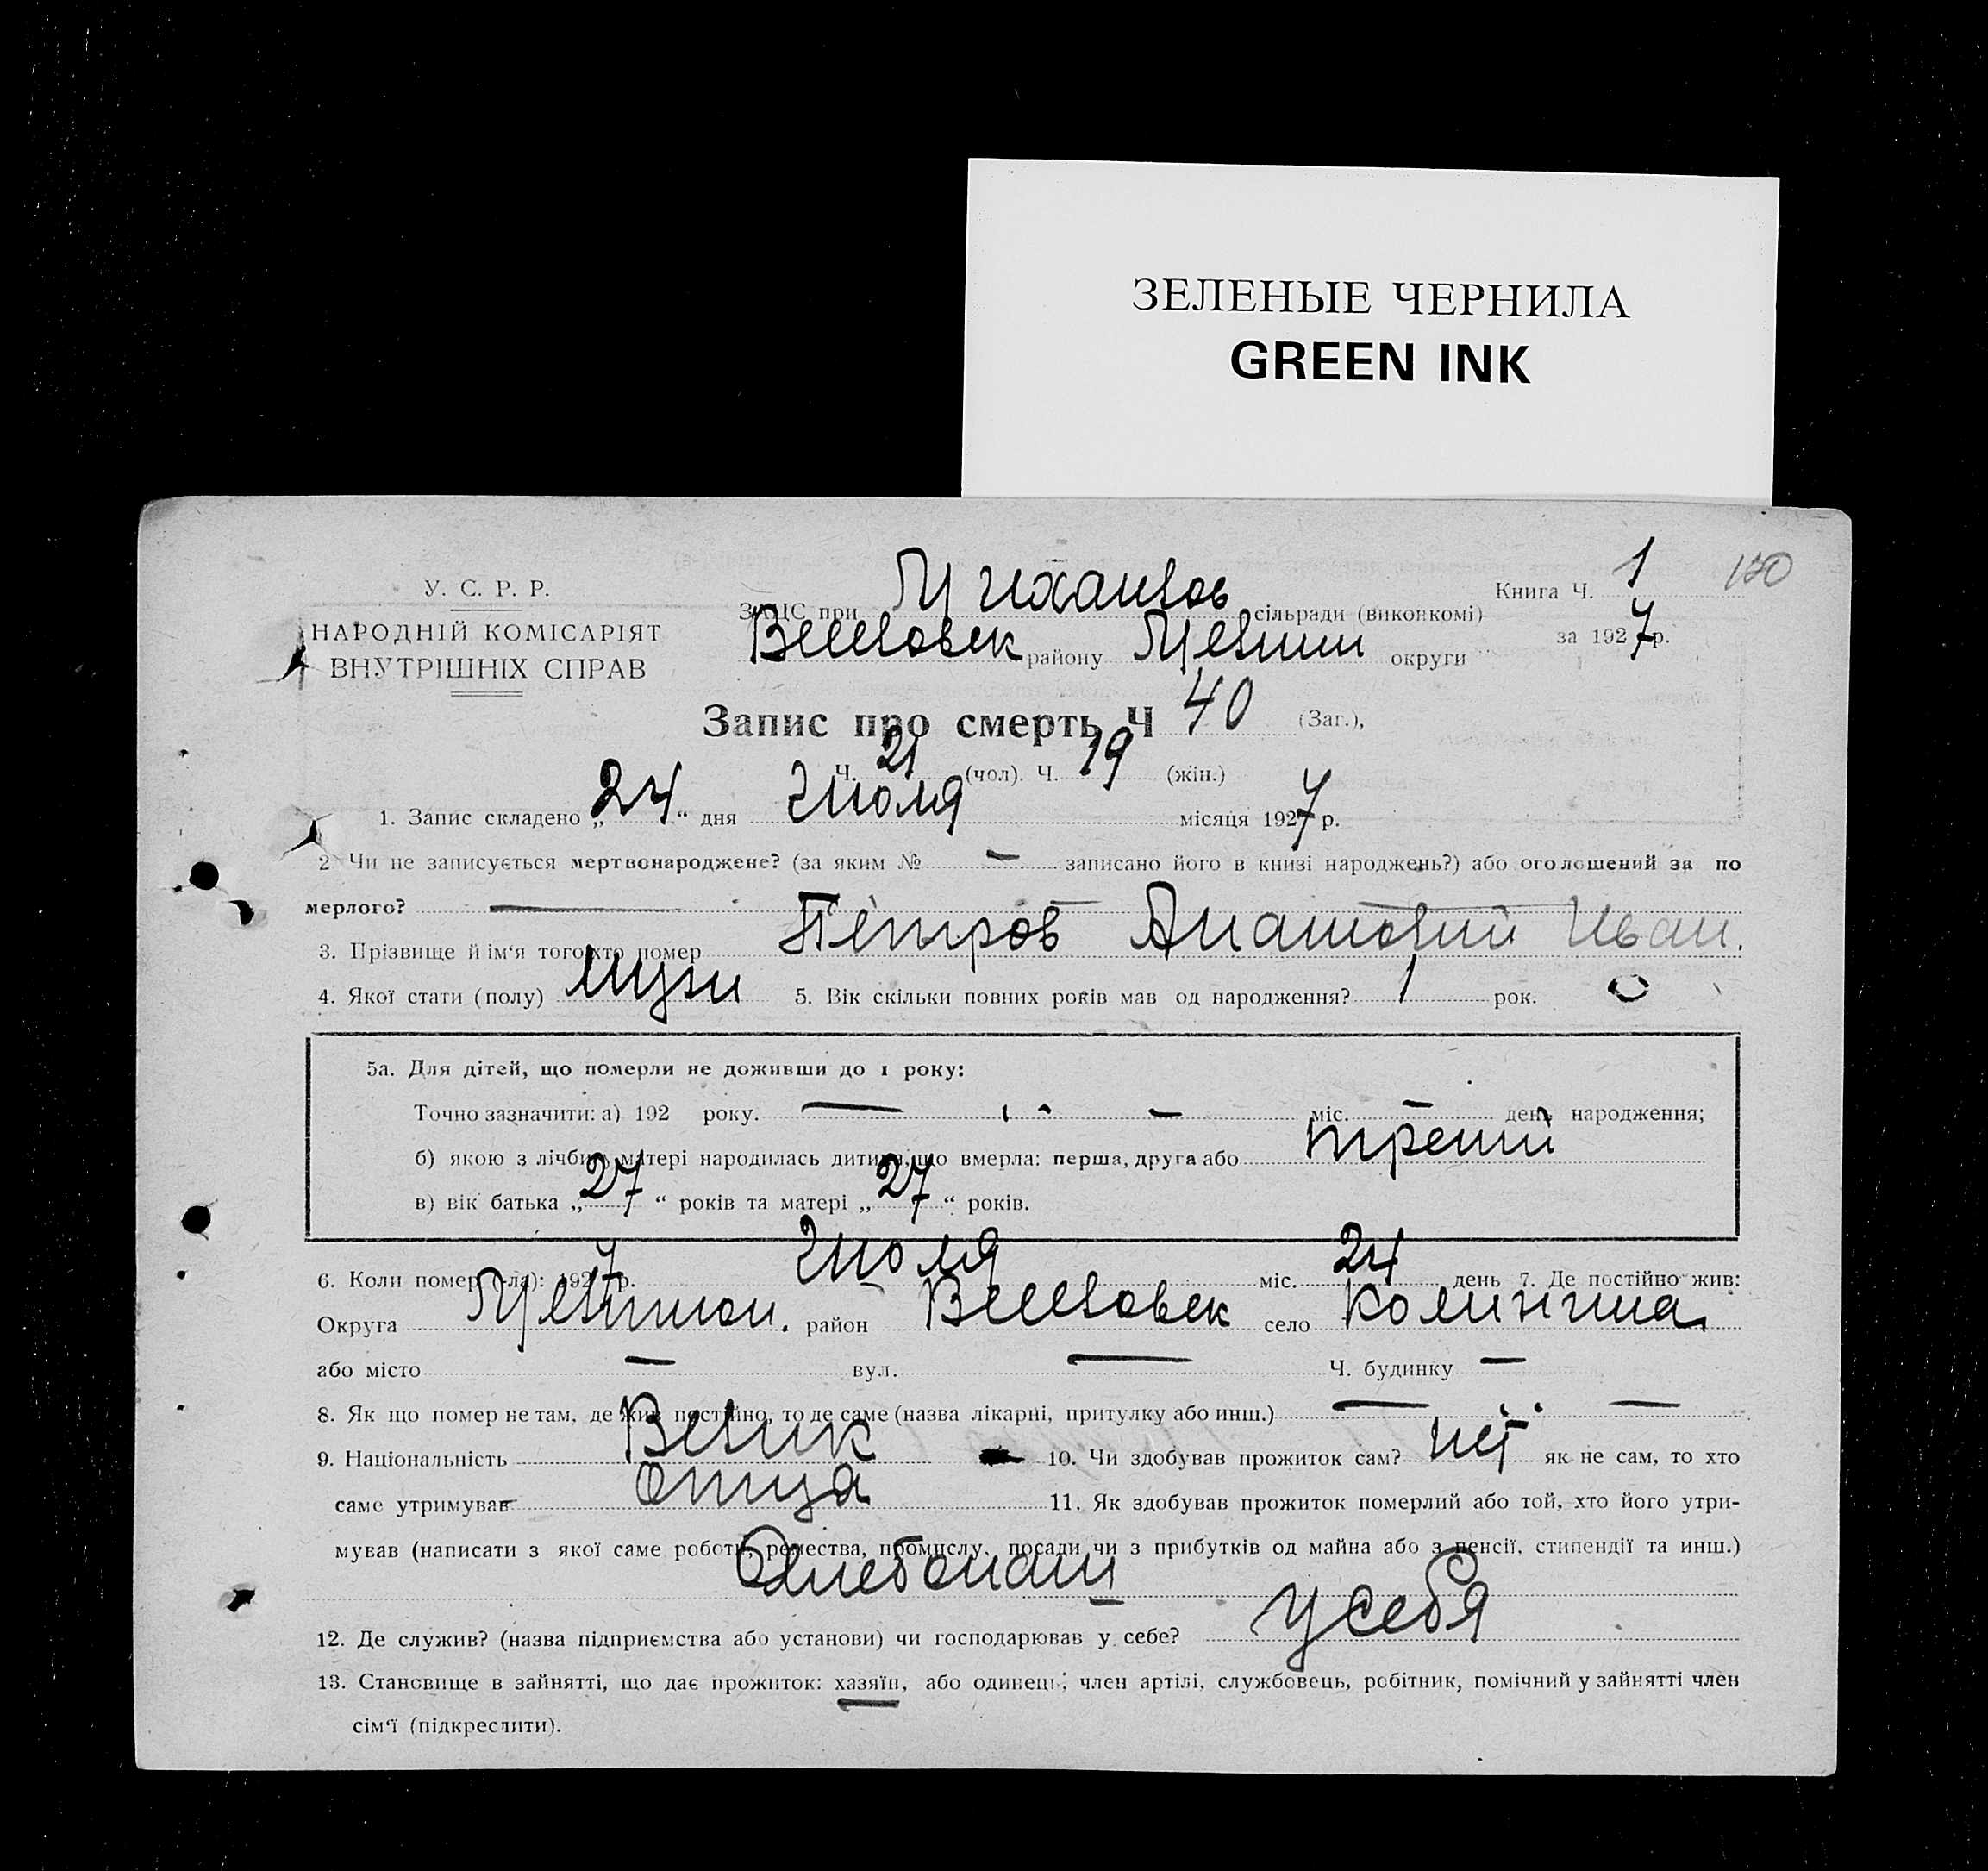 ЗЕЛЕНЫЕ ЧЕРНИЛА
GREEN INK
У. С. Р. Р.
НАРОДНІЙ КОМІСАРІЯТ
ВНУТРІШНІХ СПРАВ
ЗАЦС при Михайлов сільради (виконкомі)
Книга Ч. 1
району округи
за 1927 р.
Запис про смерть Ч 40 (Заг.),
Ч. 21 (чол). Ч. 19 (жін.)
1. Запис складено „24“ дня Июля місяця 1927 р.
2 Чи не записується мертвонароджене? (за яким № — записано його в книзі народжень?) або оголошений за по
мерлого? —
3. Прізвище й ім'я того хто помер Петров Анатолий Иван.
4. Якої стати (полу) муж 5. Вік скільки повних років мав од народження? 1 рок.
5а. Для дітей, що померли не доживши до 1 року:
Точно зазначити: а) 192 року. — — міс. — день народження;
б) якою з лічби у матері народилась дитина, що вмерла: перша, друга або третий
в) вік батька „27“ років та матері „27“ років.
6. Коли помер (-ла): 1927 р. Июля міс. 24 день 7. Де постійно жив:
Округа район село
або місто — вул. — Ч. будинку —
8. Як що помер не там, де жив постійно, то де саме (назва лікарні, притулку або инш.) — —
9. Національність Велик 10. Чи здобував прожиток сам? нет як не сам, то хто
саме утримував отца 11. Як здобував прожиток померлий або той, хто його утри-
мував (написати з якої саме роботи, ремества, промислу, посади чи з прибутків од майна або з пенсії, стипендії та инш.)
Хлебопаш
12. Де служив? (назва підприємства або установи) чи господарював у себе? у себя
13. Становище в зайнятті, що дає прожиток: хазяїн, або одинець; член артілі, службовець, робітник, помічний у зайнятті член
сім'ї (підкреслити).